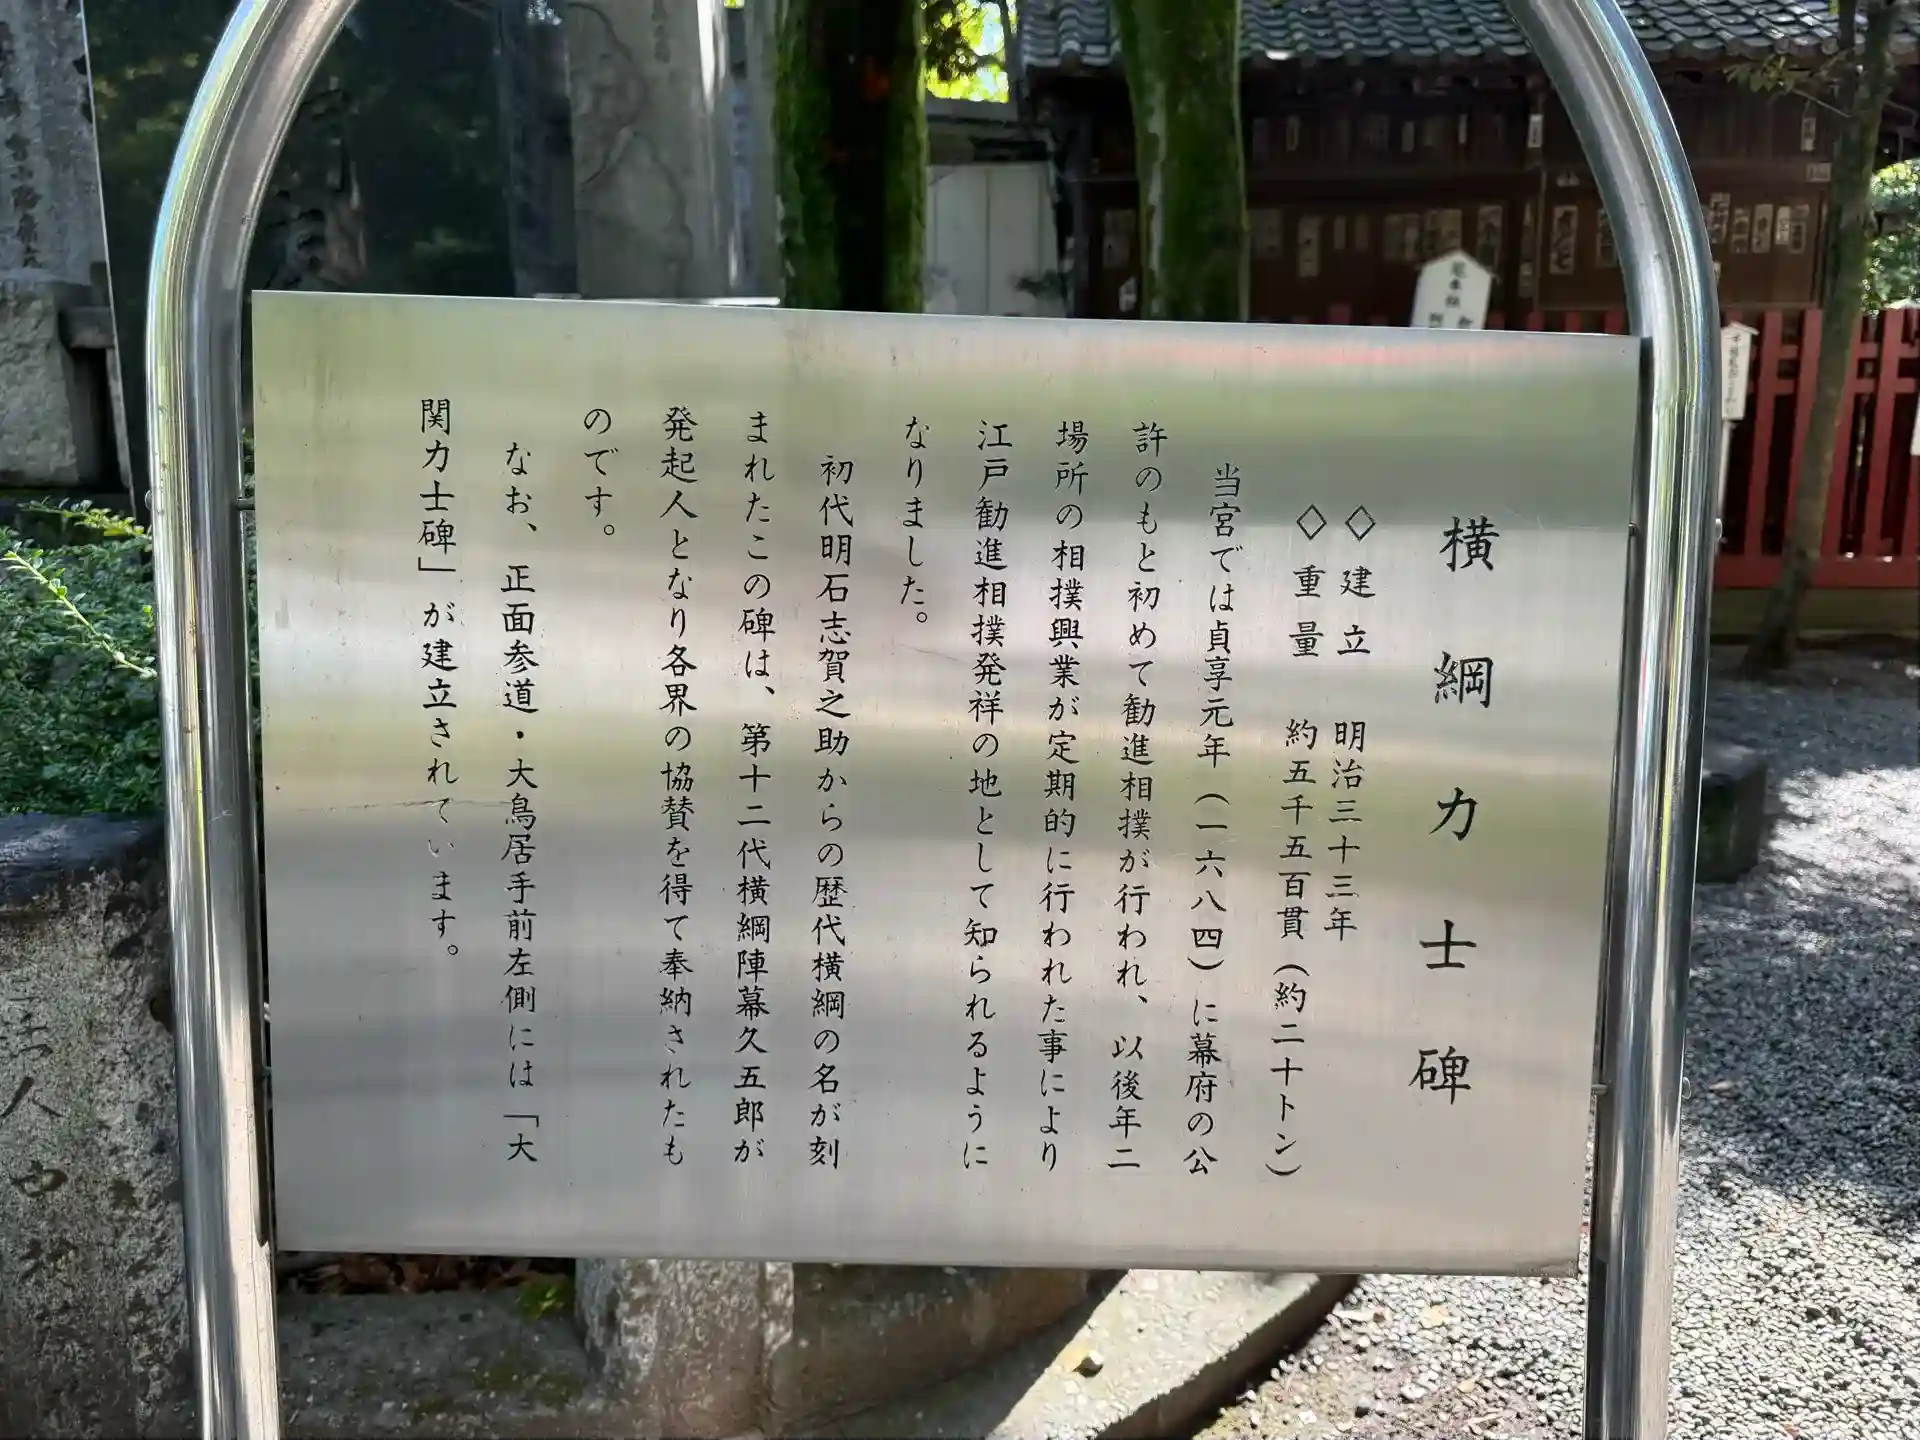 横綱力士碑
◇建立 明治三十三年
◇重量 約五千五百貫(約二十トン)
当宮では貞享元年(一六八四)に幕府の公
許のもと初めて勧進相撲が行われ、以後年二
場所の相撲興業が定期的に行われた事により
江戸勧進相撲発祥の地として知られるように
なりました。
初代明石志賀之助からの歴代横綱の名が刻
まれたこの碑は、第十二代横綱陣幕久五郎が
発起人となり各界の協賛を得て奉納されたも
のです。
なお、正面参道・大鳥居手前左側には「大
関力士碑」が建立されています。